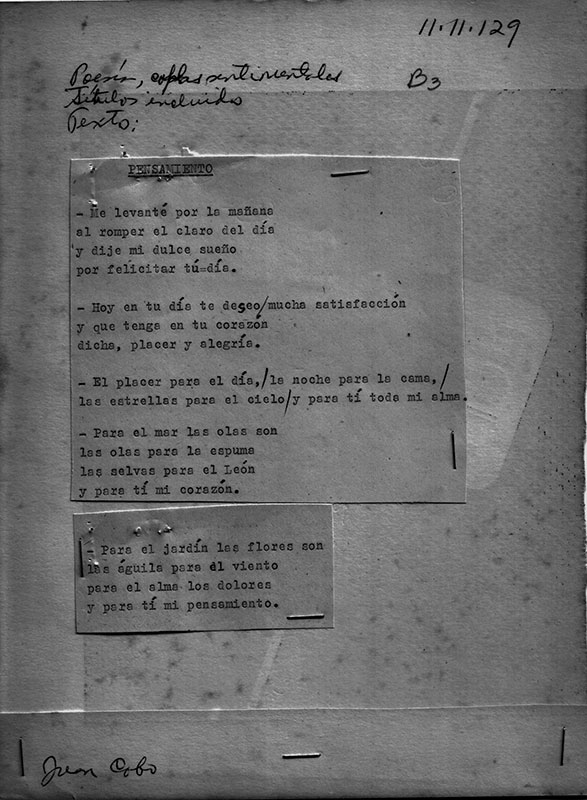 11.11.129
Poesía, coplas sentimentales B3
títulos incluidos
Texto:
PENSAMIENTO
- Me levanté por la mañana
al romper el claro del día
y dije mi dulce sueño
por felicitar tú=día.
- Hoy en tu día te deseo/mucha satisfacción
y que tenga en tu corazón
dicha, placer y alegría.
- El placer para el día,/la noche para la cama,/
las estrellas para el cielo/y para tí toda mi alma.
- Para el mar las olas son
las olas para la espuma
las selvas para el León
y para tí mi corazón.
- Para el jardín las flores son
las águila para el viento
para el alma los dolores
y para tí mi pensamiento.
Juan Cobo